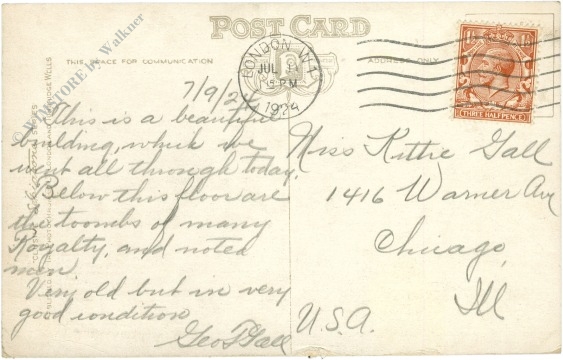 POST CARD
THIS SPACE FOR COMMUNICATION
ADDRESS ONLY
LONDON
JUL 11
5 PM
1924
THREE HALFPENCE
© WINSTORE by Walkner
7/9/24
This is a beautiful
building, which we
went all through today.
Below this floor are
the toombs of many
Royalty, and noted
men
Very old but in very
good condition
Geo T Gall
Miss Kittie Gall
1416 Warner Av
Chicago,
Ill
U.S.A.